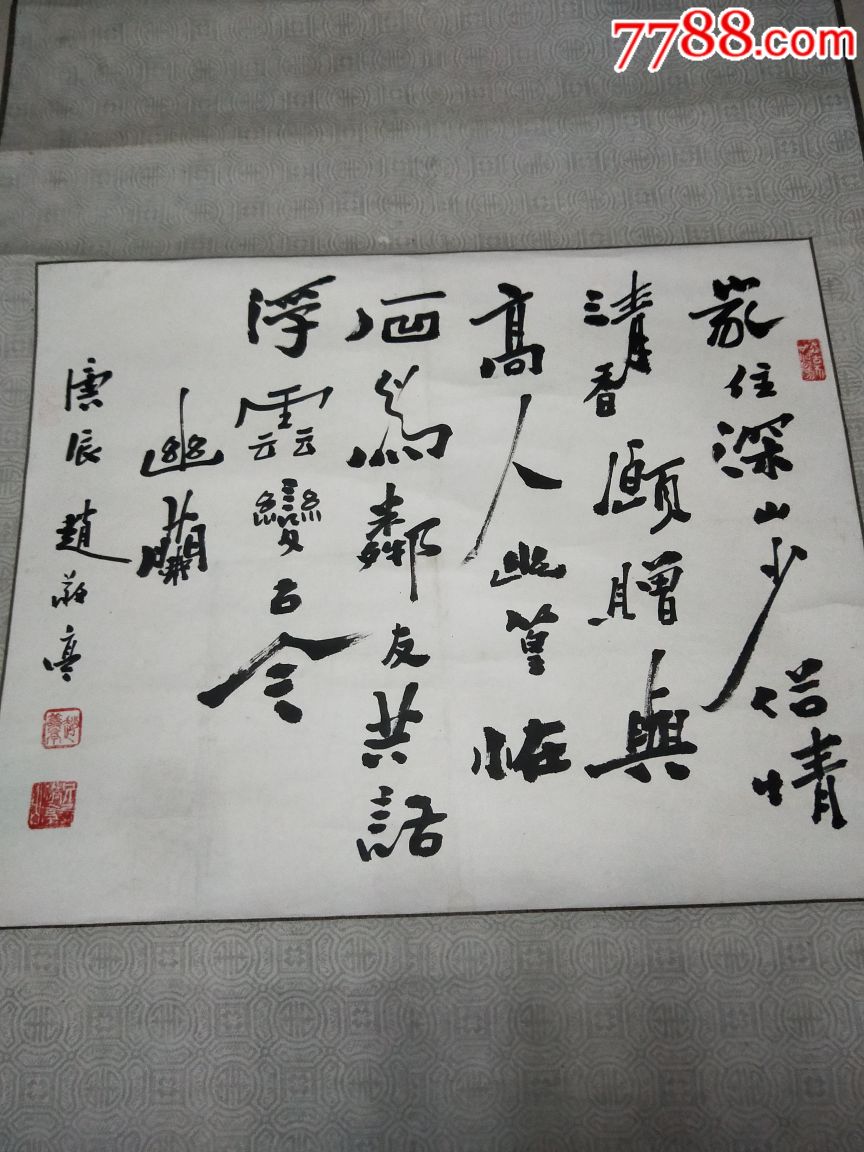 7788.com
家住深山少俗情
清香願贈與
高人幽篁怪
石為鄰友共話
浮雲變古今
幽蘭
庚辰 趙敬亭